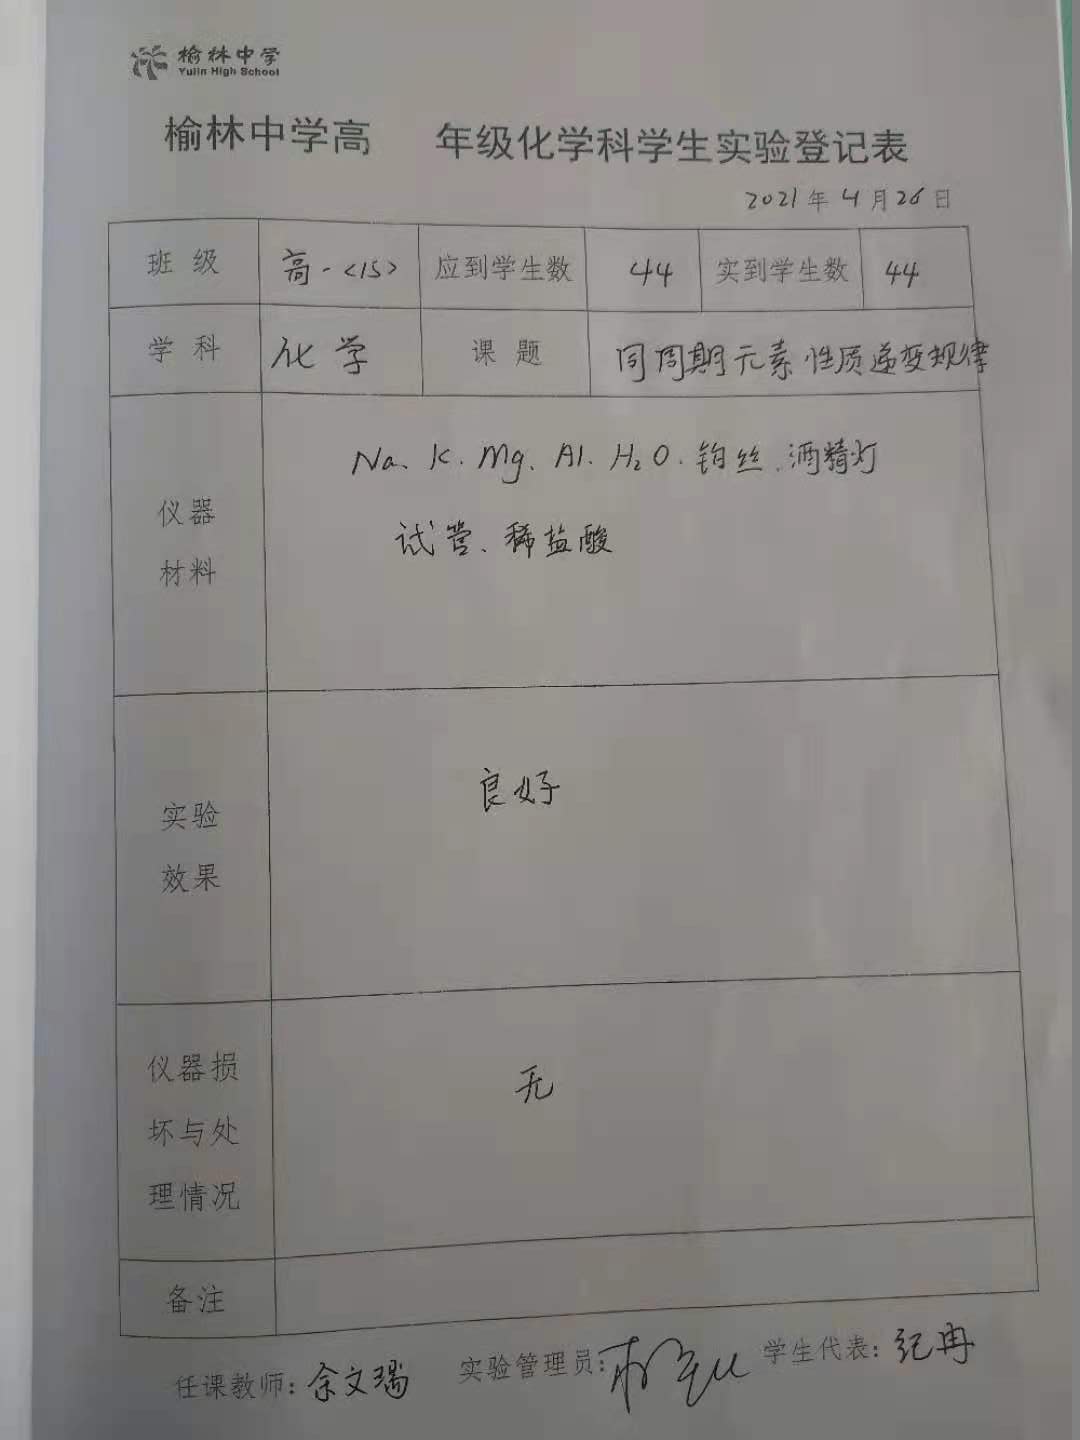 榆林中学
Yulin High School
榆林中学高 年级化学科学生实验登记表
2021年4月26日
班级 高一<15> 应到学生数 44 实到学生数 44
学科 化学 课题 同周期元素性质递变规律
仪器
材料
Na、K、Mg、Al、H₂O、铂丝、酒精灯
试管、稀盐酸
实验
效果
良好
仪器损
坏与处
理情况
无
备注
任课教师：余文瑞 实验管理员： 学生代表：纪冉